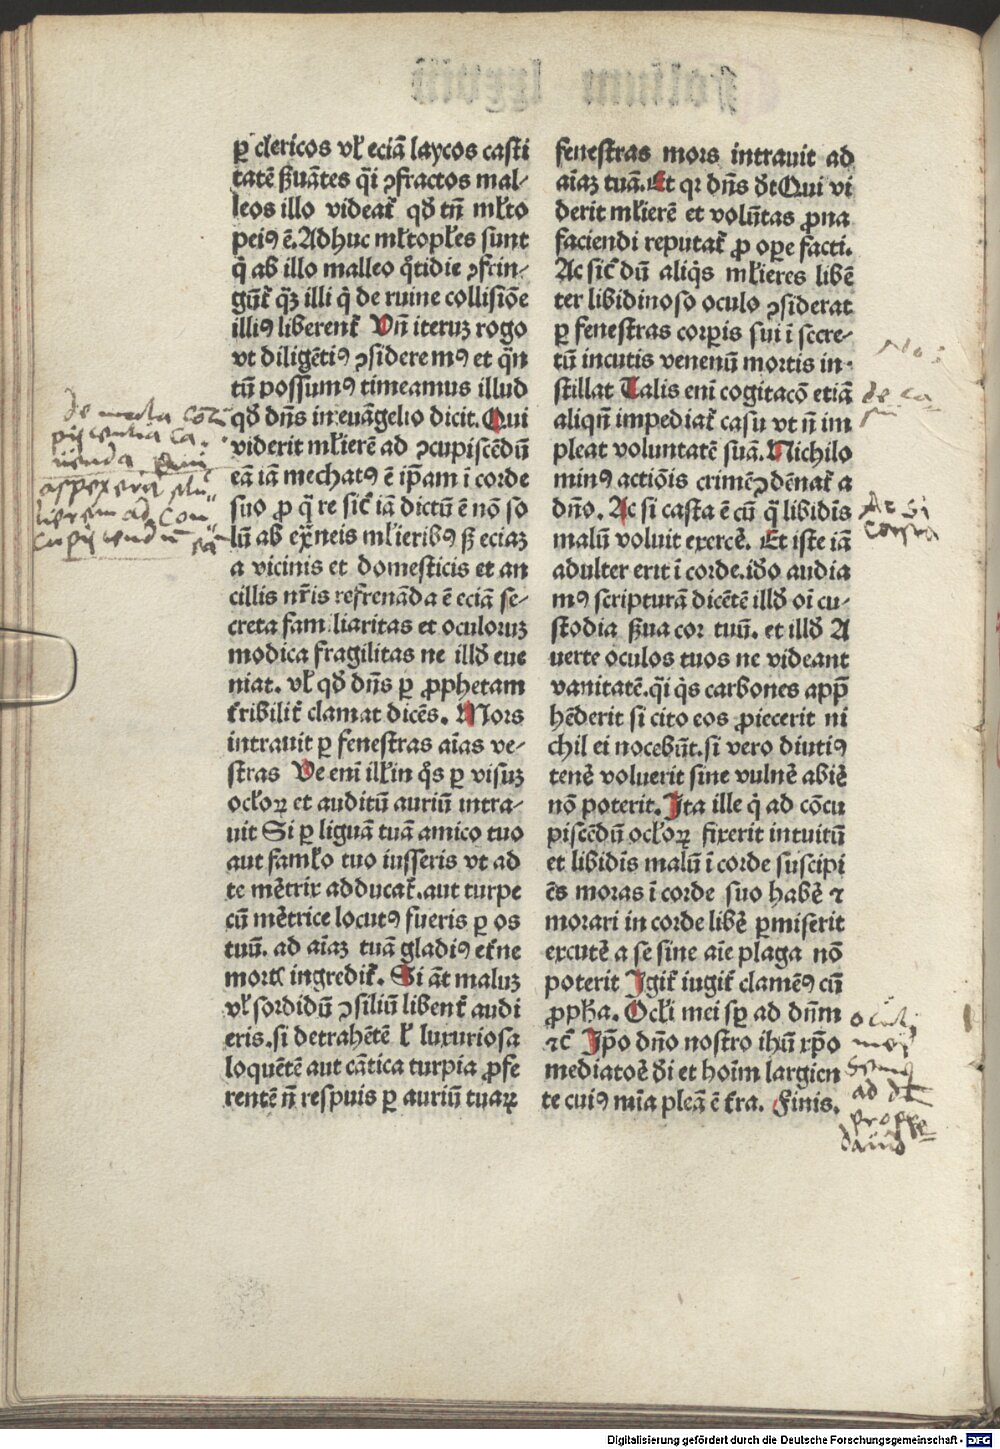 ꝑ cl̕ericos vł eciā laycos casti
tatē ẜuātes q̄i ꝯfractos mal-
leos illo videat̕ qđ tn̄ mlto
peiꝰ ē. Adhuc mltoples sunt
q̇ ab illo malleo q̊tidie ꝯfrin-
gūt̕ qꝫ illi q̇ de ruine collisiōe
illiꝰ liberent̕ Vn̄ iteruꝫ rogo
vt diligētiꝰ ꝯsideremꝰ et qn̄
tū possumꝰ timeamus illud
qđ dn̄s in euāgelio dicit. Qui
viderit mlierē ad ꝯcupiscēdū
eā iā mechatꝰ ē ip̄am ī corde
suo ꝓ q̄ re sic̕ iā dictū ē nō so
lū ab ext̄neis mlieribꝰ ẜꝫ eciaꝫ
a vicinis et domesticis et an
cillis nr̄is refrenāda ē eciā se-
creta familiaritas et oculoruꝫ
modica fragilitas ne illđ eue
niat. vł qđ dn̄s ꝑ ꝓphetam
t̕ribilit̕ clamat dicēs. Mors
intrauit ꝑ fenestras aīas ve-
stras Ve eni illi in q̊s ꝑ visuꝫ
oclorꝝ et auditū auriū intra-
uit Si ꝑ liguā tuā amico tuo
aut famlo tuo iusseris vt ad
te me̕trix adducat̕. aut turpe
cū me̕trice locutꝰ fueris ꝑ os
tuū. ad aīaꝫ tuā gladiꝰ et̕ne
mortꝭ ingredit̕. Si āt maluꝫ
vł sordidū ꝯsiliū libent̕ audi
eris. si detrahētē ł luxuriosa
loquētē aut cātica turpia ꝓfe
rentē n̄ respuis ꝑ auriū tuarꝝ
fenestras mors intrauit ad
aīaꝫ tuā. Et qꝛ dn̄s đt Qui vi
derit mlierē et volūtas ꝓna
faciendi reputat̕ ꝓ oꝑe facti.
Ac sic̕ dū aliq̇s mlieres libē
ter libidinoso oculo ꝯsiderat
ꝑ fenestras corꝑis sui ī secre-
tū incutis venenū mortis in-
stillat Talis eni cogitacō etiā
aliqn̄ impediat̕ casu vt n̄ im
pleat voluntatē suā. Nichilo
minꝰ actiōis crimē ꝯdēnat̕ a
dn̄o. Ac si casta ē cū q̄ libidīs
malū voluit exerce̕. Et iste iā
adulter erit ī corde. iđo audia
mꝰ scripturā dicētē illđ oī cu-
stodia ẜua cor tuū. et illđ A
uerte oculos tuos ne videant
vanitatē. q̄i q̇s carbones app̄
hēderit si cito eos ꝓiecerit ni
chil ei nocebūt. si vero diutiꝰ
tene̕ voluerit sine vulne̕ abie̕
nō poterit. Ita ille q̇ ad cōcu
piscēdū oclorꝝ fixerit intuitū
et libidīs malū ī corde suscipi
ēs moras ī corde suo habe̕ ⁊
morari in corde libe̕ ꝑmiserit
excute̕ a se sine aīe plaga nō
poterit Igit̕ iugit̕ clamēꝰ cū
ꝓpħa. Ocli mei sꝑ ad dn̄m
⁊c̕ Ip̄o dn̄o nostro ihū xp̄o
mediatoē đi et hoīm largien
te cuiꝰ mīa pleā ē t̕ra. Finis.
De mala con
aspexerit mu
lierem ad con
cupiscendū eā
No:
de ca
su
Ac si
casta
oculi
mei
semꝑ
ad
dauid